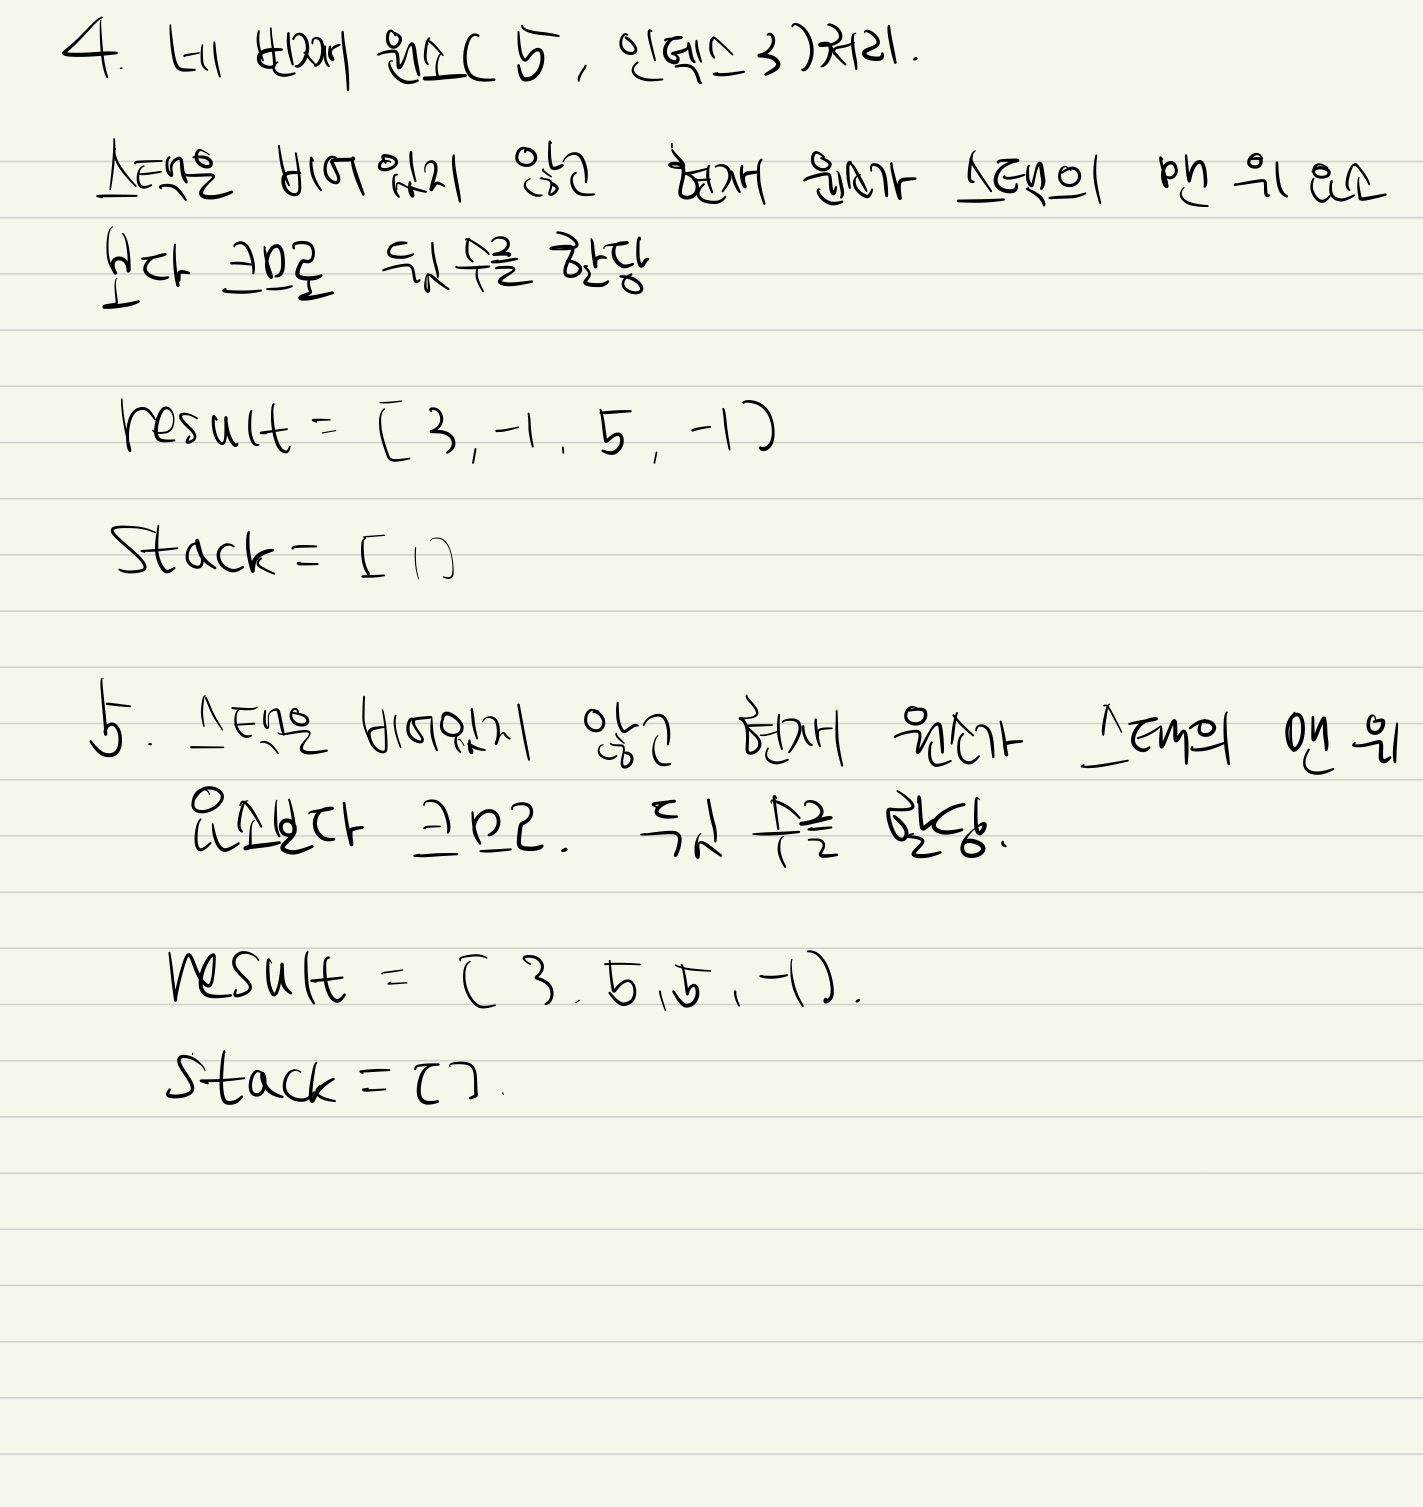 4. 네 번째 원소( 5, 인덱스 3)처리.
스택은 비어있지 않고 현재 원소가 스택의 맨 위 요소
보다 크므로 뒷 수를 할당
result = [3, -1, 5, -1]
Stack = [1]
5. 스택은 비어있지 않고 현재 원소가 스택의 맨 위
요소보다 크므로. 뒷 수를 할당.
result = [3. 5, 5, -1].
Stack = [].